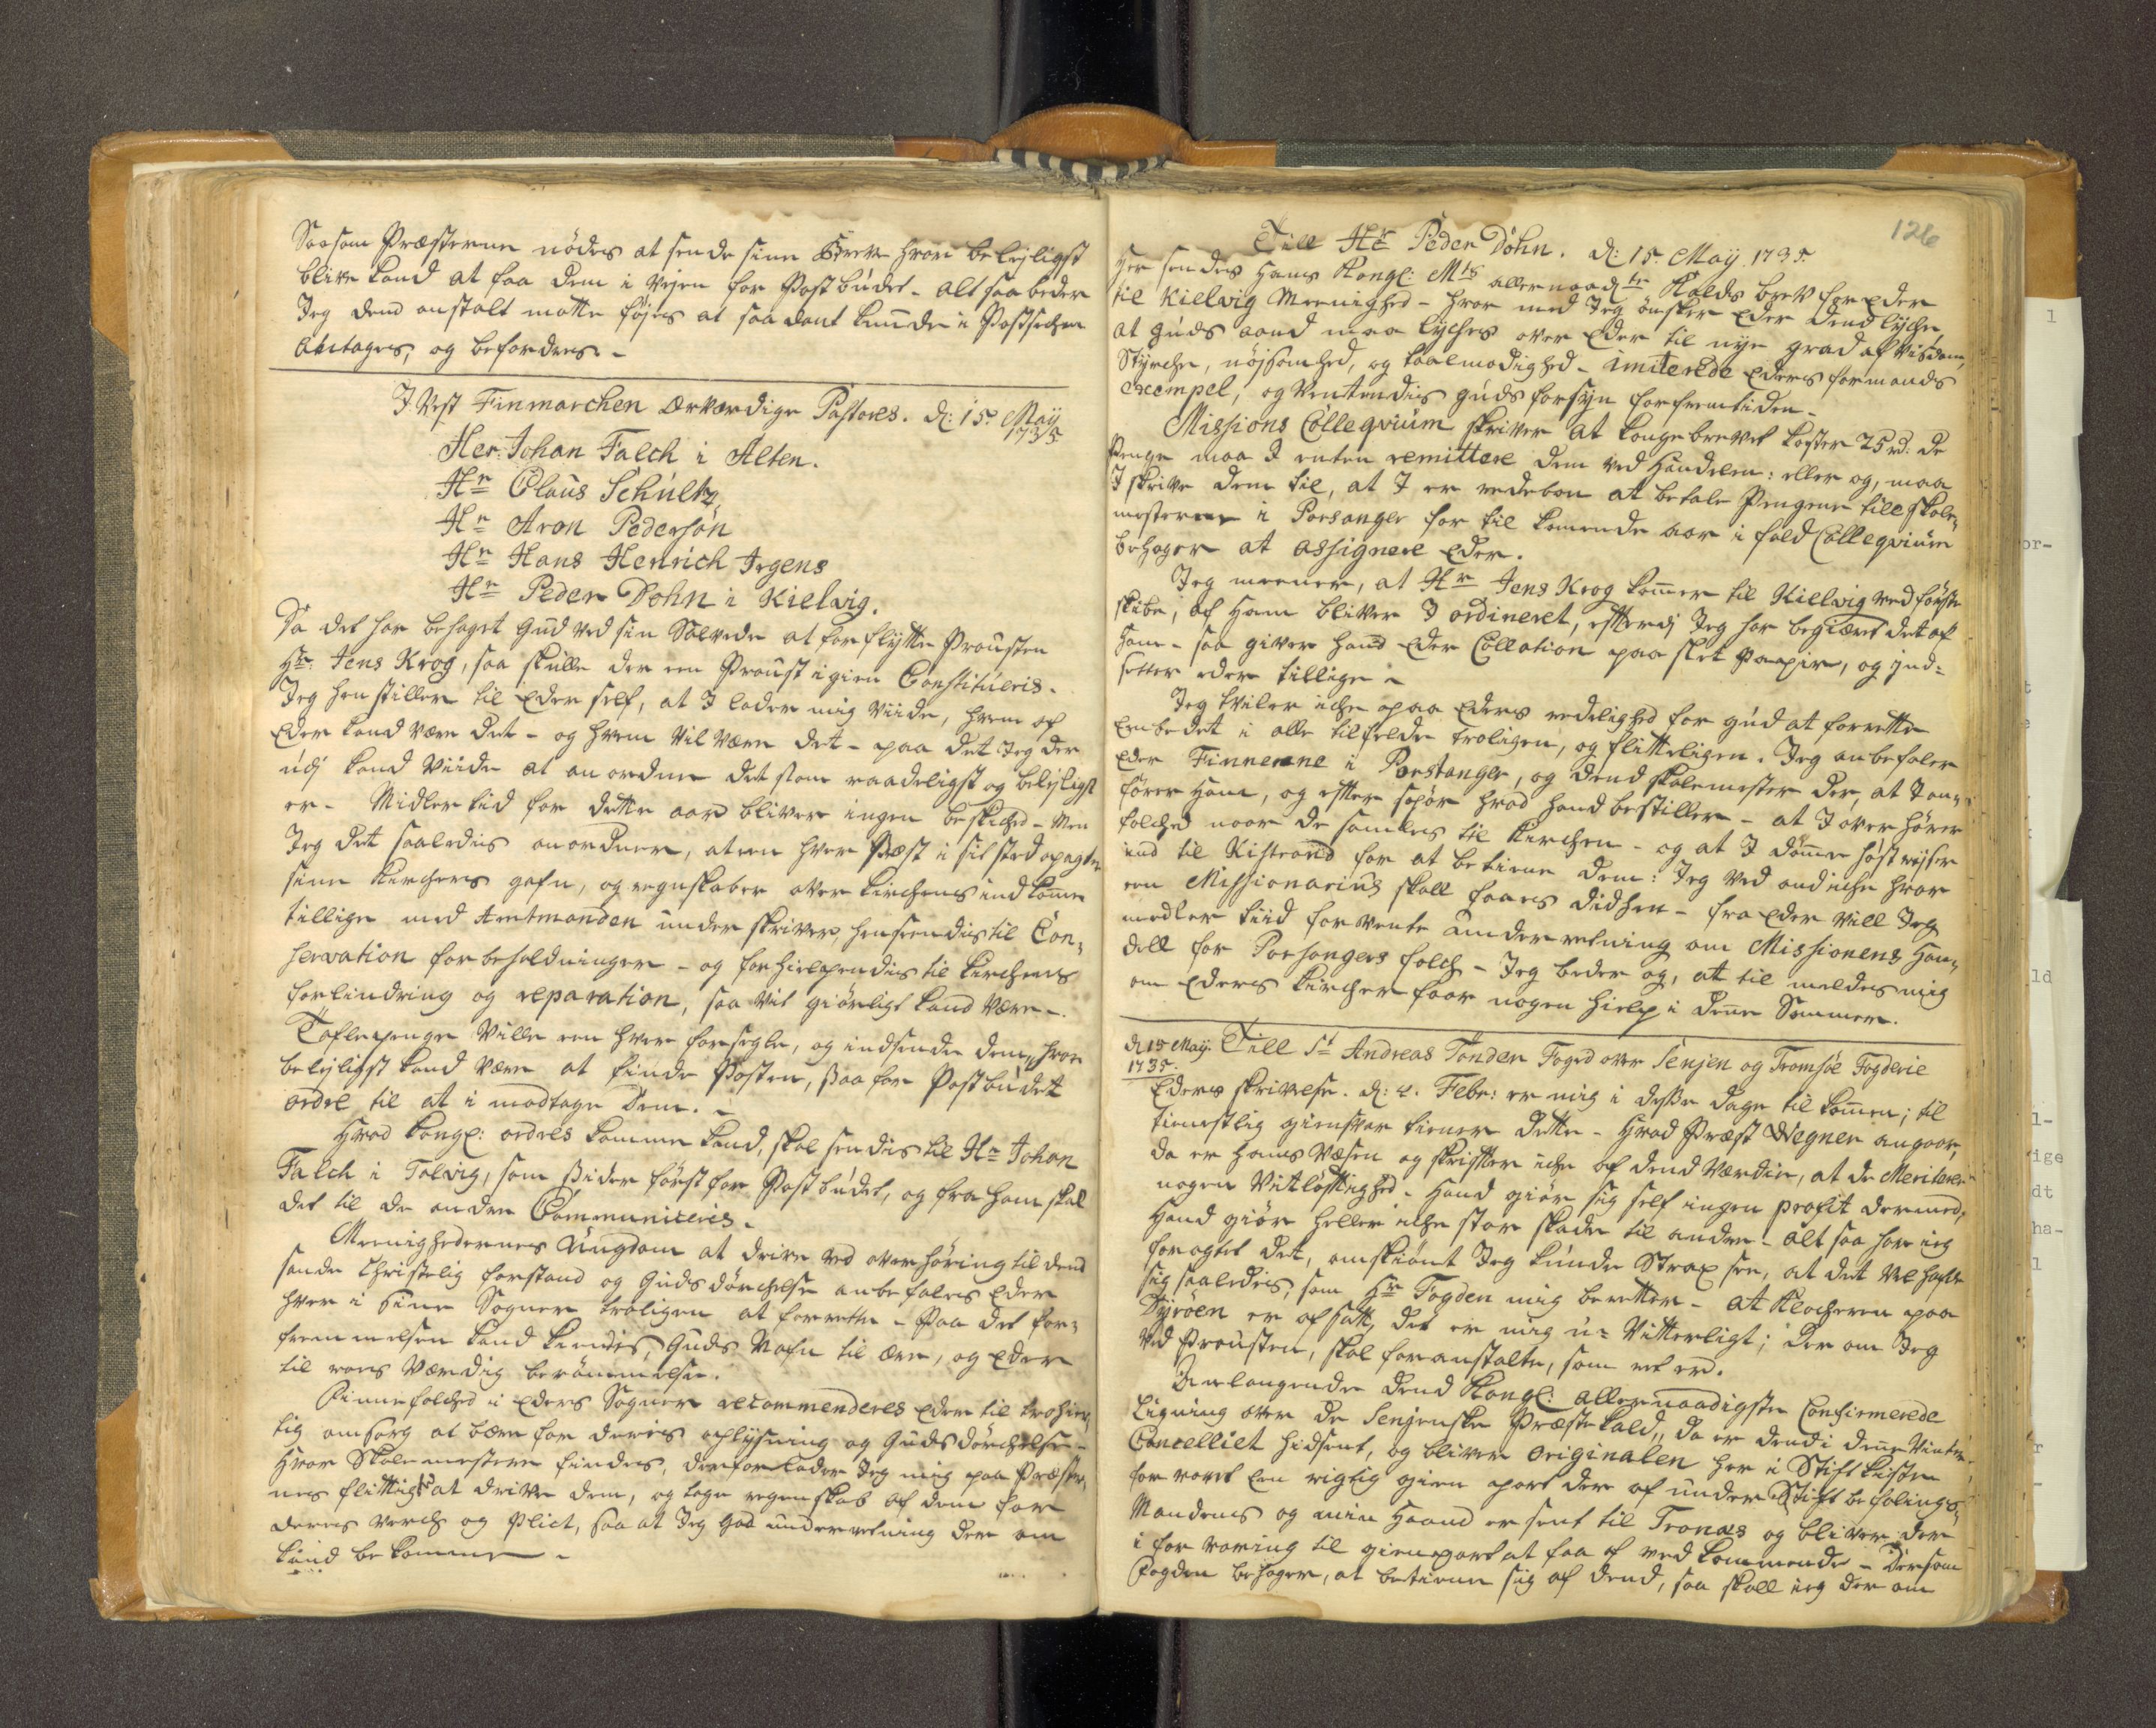 Saasom Præsterne nödes at sende sine breve hvor belejligst
blive kand at faa dem i Vejen for Postbudet - alt saa beder
Jeg dend anstalt motte föjes at saadant kunde i Postsechen
antages, og befordres -
I Vest Finmarchen ærværdige Pastores. d: 15. Maÿ
1735
Her Johan Falch i Alten.
Hr Claus Schultz
Hr Aron Pedersön
Hr Hans Henrich Irgens
Hr Peder Dohn i Kielvig.
Da det har behaget Gud ved sin Salvede at forflytte Prousten
Hr Jens Krog, saa skulle der een Proust igien Constitueris.
Jeg henstiller til Eder self, at I lader mig viide, hvem af
Eder kand være det - og hvem vil være det - paa det Jeg der
udj kand viide at anordne det som raadeligst og belejligst
er - Midlertid for dette aar bliver ingen beskiched - Men
Jeg det saaledis anordner, at een hver Præst i sit sted opagter
sine kirchers gafn, og regnskaber over kirchens indkomme
tillige med Amtmanden underskriver, henseendis til Con,
servation forbeholdninger - og forhielpendis til kirchens
forlindring og reparation, saa vit giörligt kand være -
Tafle penge ville een hver forsegle, og indsende dem, hvor
belejligst kand være at finde Posten, saa for Postbudet
ordre til at i modtage dem. -
Hvad kongl: ordres komme kand, skal sendis til Hr Johan
Falch i Talvig, som sider först for Postbudet, og fra ham skal
det til de andre Communiceris.
Meenighedernes Ungdom at drive ved overhöring til dend
sande Christelig forstand og Guds dörchelse anbefales Eder
hver i sine Sogner troligen at forrette - Paa det for,
fremmelsen kand kiendis, Guds Nafn til ære, og Eder
til roes værdig berömmelse.
Finnefolched i Eders Sogner recommenderes Eder til trohier,
tig omsorg at bære for deris oplysning og Guds dörchelse -
Hvor Skolemestere findes, derfor lader Jeg mig paa Præster,
nes flittighed at drive dem, og tage regenskab af dem for
deres verch og Plict, saa at Jeg god underretning der om
kand bekomme -
126
Till Hr Peder Dohn. d: 15. May. 1735.
Her sendes Hans Kongl: Mts allernaadste Kalds brev for Eder
til Kielvig Meenighed - hvor med Jeg önsker Eder dend lyche,
at Guds aand maa lyches over Eder til nye grad af Visdom,
Styrche, nöjsomhed, og taalmodighed - imiterede Eders formands
exempel, og ventendis Guds forsyn for fremtiden -
Missions Collegvium skriver at kongebrevet koster 25 rd: de
Penge maa I enten remittere dem ved Handelen: eller og, maa
I skrive dem til, at I er redebon at betale Pengene till skole,
mesterne i Porsanger for til komende aar i fald Collegvium
behager at assignere Eder.
Jeg meener, at Hr Jens Krog kommer til Kielvig ved förste
skibe, af ham bliver I ordineret, efterdj Jeg har begiæret det af
ham - saa giver hand Eder Collation paa slet Papir, og ind=
setter eder tillige -
Jeg tviler iche paa Eders redelighed for Gud at forrette
Embedet i alle tilfelde troligen, og flitteligen. Jeg anbefaler
Eder Finnerne i Porsanger, og dend skolemester der, at I an,
förer ham, og efter spör hvad hand bestiller - at I over hörer
folched naar de samles til kirchen - og at I denne höst rejser
ind til Kistrand for at betiene dem: Jeg ved endnu iche hvor
een Missionarius skall faaes didhen - fra Eder vill Jeg
medler tiid forvente underretning om Missionens Han,
dell for Porsangers folch - Jeg beder og, at til meldes mig
om Eders kircher faar nogen hielp i denne Sommer.
d. 15 May. Till Sr Andreas Tönder Foged over Senjen og Tromsöe Fogderie
1735.
Eders skrivelse. d: 4. Febr: er mig i desse dage til kommen; til
tienestlig giensvar tiener dette - Hvad Præst Wegner angaar,
da er hans væsen og skrifter iche af dend værdie, at de Meriterer
nogen vitlöftighed - Hand giör sig self ingen profit dermed,
Hand giör heller iche stor skade til andre - alt saa har ieg
foragtet det, omskiönt Jeg kunde strax see, at det vel hafde
sig saaledis, som Hr Fogden mig beretter - at klocheren paa
Dyröen er afsatt, det er mig u= vitterligt; der om Jeg
ved Prousten, skal foranstalte, som ret er.
Anlangende dend Kongl: allernaadigste Confirmerede
Ligning over de Senjenske Præste kald, da er dend i denne vinter
Cancelliet hidsent, og bliver originalen her i Stiftkisten
forvaret Een rigtig gien part der af under Stiftbefalings
Mandens og min Haand er sent til Tronæs og bliver der
i forvaring til gienpart at faa af vedkommende - Dersom
Fogden behager, at betiene sig af dend, saa skall ieg der om